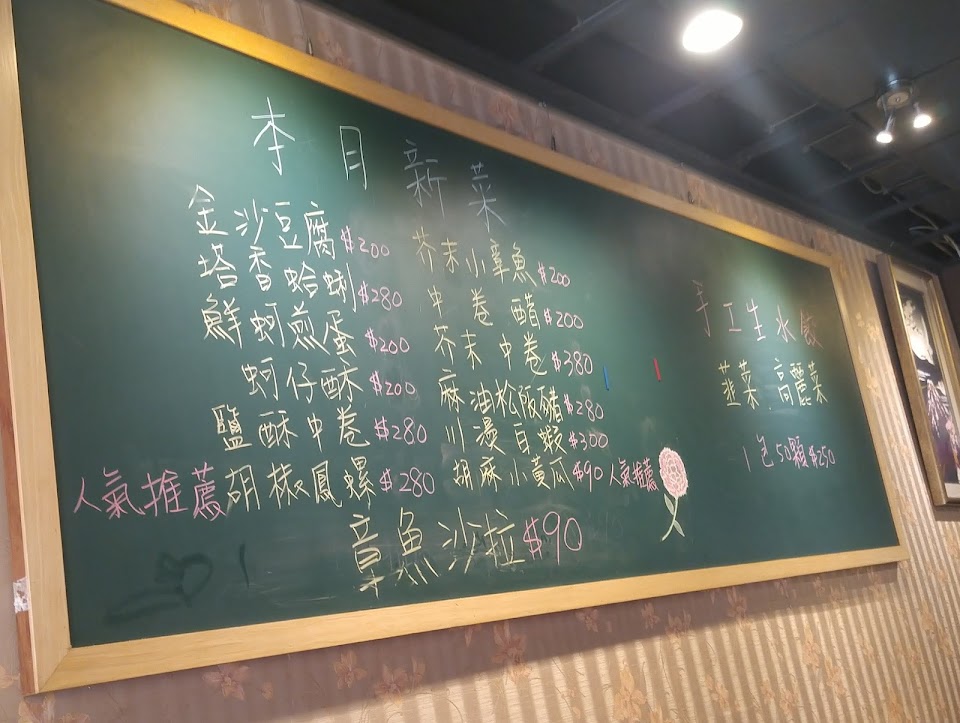 本月新菜
金沙豆腐$200
塔香蛤蜊$280
鮮蚵煎蛋$200
蚵仔酥$200
鹽酥中卷$280
人氣推薦胡椒鳳螺$280
芥末小章魚$200
中卷醋$200
芥末中卷$380
麻油松阪豬$280
川燙白蝦$300
胡麻小黃瓜$90人氣推薦
章魚沙拉$90
手工生水餃
韭菜.高麗菜
1包50顆$250